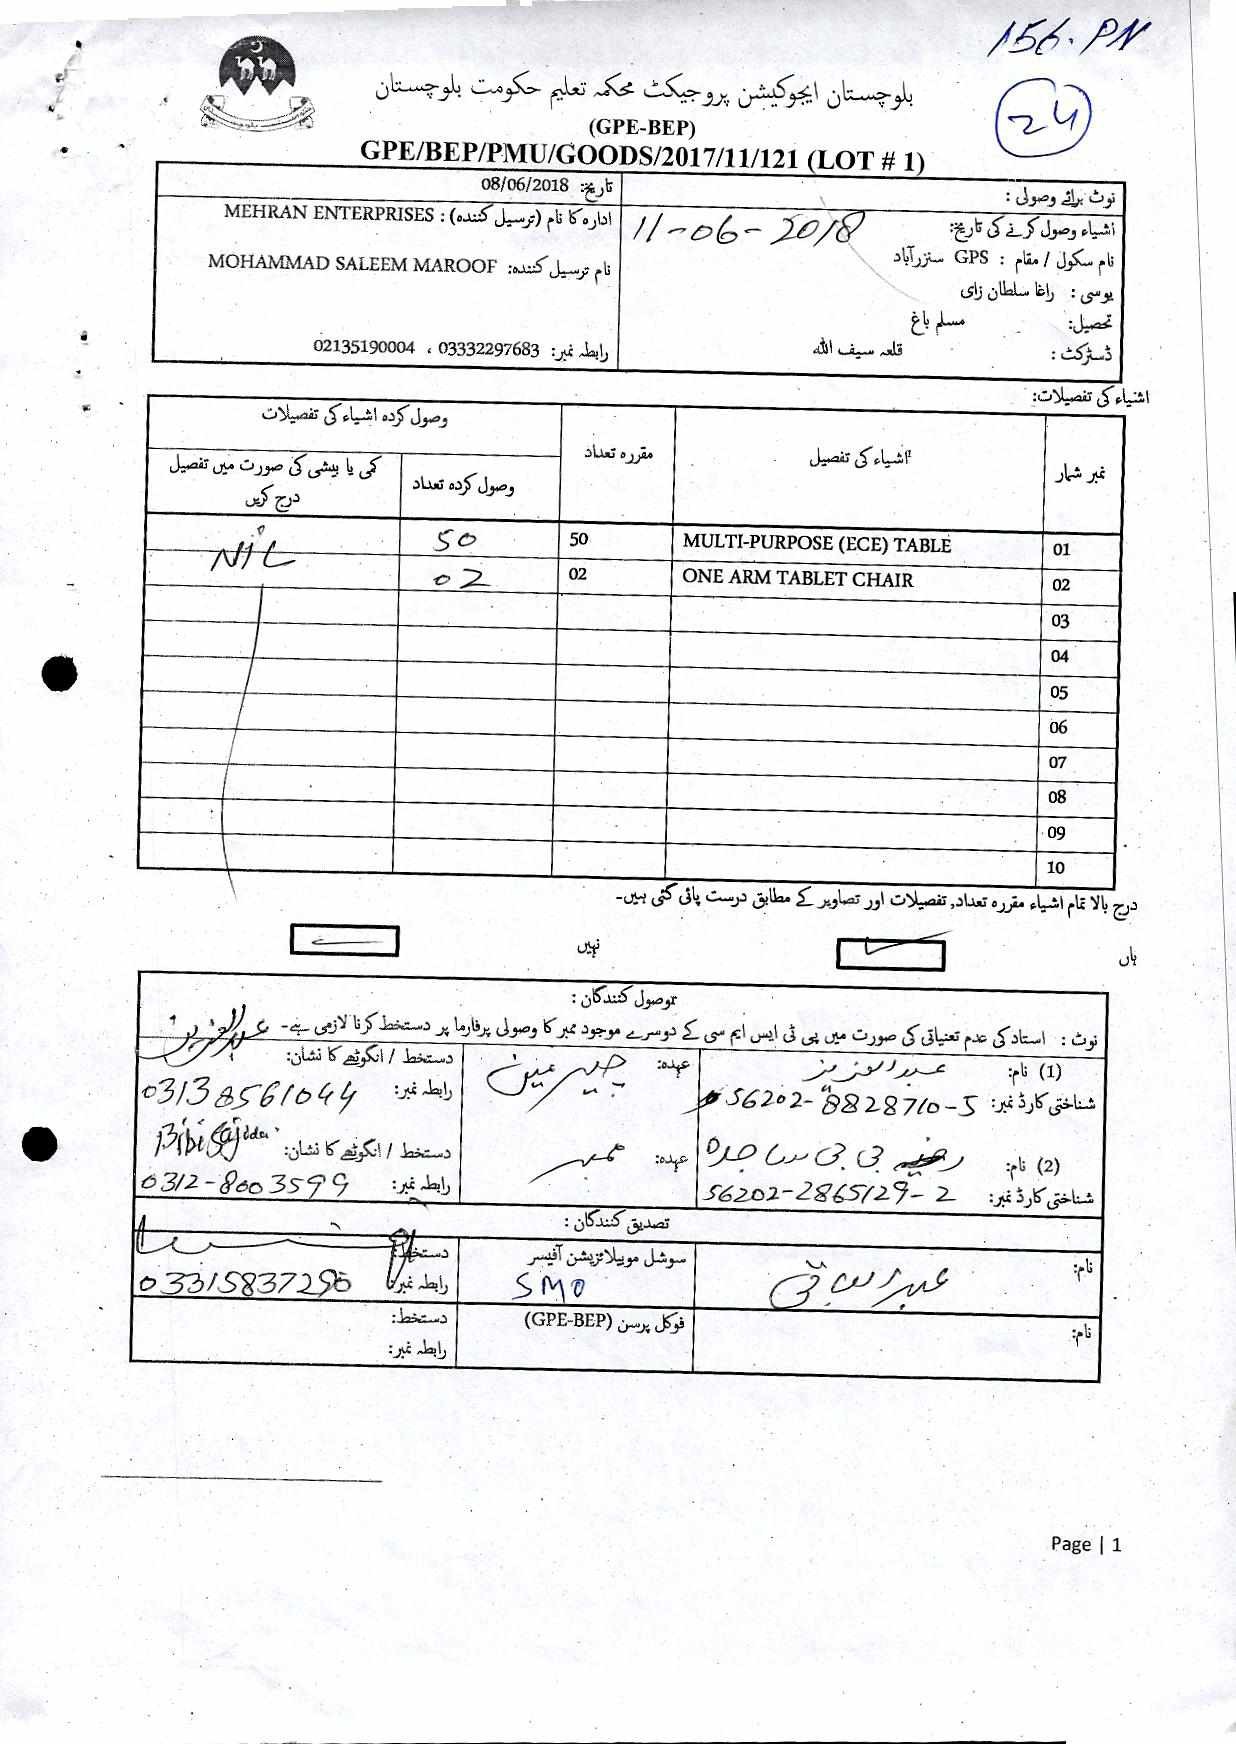 156-PN
24
بلوچستان ایجوکیشن پروجیکٹ محکمہ تعلیم حکومت بلوچستان
(GPE-BEP)
GPE/BEP/PMU/GOODS/2017/11/121 (LOT # 1)
نوٹ برائے وصولی :
اشیاء وصول کرنے کی تاریخ: 11-06-2018
نام سکول / مقام : GPS سنزرآباد
یوسی : راغا سلطان زای
تحصیل: مسلم باغ
ڈسٹرکٹ : قلعہ سیف اللہ
تاریخ: 08/06/2018
ادارہ کا نام (ترسیل کنندہ) : MEHRAN ENTERPRISES
نام ترسیل کنندہ: MOHAMMAD SALEEM MAROOF
رابطہ نمبر: 03332297683 ، 02135190004
اشیاء کی تفصیلات:
نمبر شمار اشیاء کی تفصیل مقررہ تعداد وصول کردہ اشیاء کی تفصیلات
وصول کردہ تعداد کمی یا بیشی کی صورت میں تفصیل درج کریں
01 MULTI-PURPOSE (ECE) TABLE 50 50 NIL
02 ONE ARM TABLET CHAIR 02 02
03
04
05
06
07
08
09
10
درج بالا تمام اشیاء مقررہ تعداد, تفصیلات اور تصاویر کے مطابق درست پائی گئی ہیں۔
ہاں نہیں
موصول کنندگان :
نوٹ : استاد کی عدم تعنیاتی کی صورت میں پی ٹی ایس ایم سی کے دوسرے موجود ممبر کا وصولی پرفارما پر دستخط کرنا لازمی ہے۔
(1) نام: عبدالعزیز عہدہ: چیرمین دستخط / انگوٹھے کا نشان: عبدالعزیز
شناختی کارڈ نمبر: 56202-8828710-5 رابطہ نمبر: 03138561044
(2) نام: بی بی ساجدہ عہدہ: ممبر دستخط / انگوٹھے کا نشان: Bibi Sajidda
شناختی کارڈ نمبر: 56202-2865129-2 رابطہ نمبر: 0312-8003599
تصدیق کنندگان :
نام: عبدالباقی سوشل موبیلائزیشن آفیسر دستخط:
SMO رابطہ نمبر: 03315837296
نام: فوکل پرسن (GPE-BEP) دستخط:
رابطہ نمبر:
Page | 1